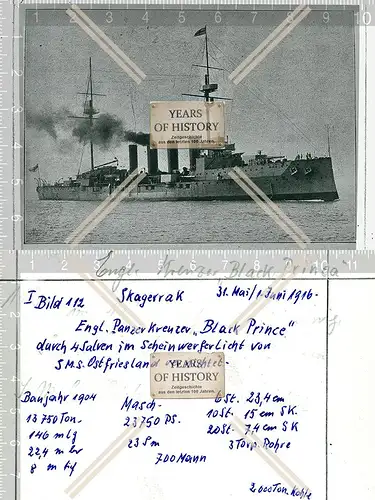 YEARS
OF HISTORY
Zeitgeschichte
aus den letzten 100 Jahren.
Engl. Kreuzer "Black Prince"
1 2 3 4 5 6 7 8 9 10 11
I Bild 112 Skagerrak 31. Mai/1 Juni 1916-
Engl. Panzerkreuzer „Black Prince"
durch 4 Salven im Scheinwerferlicht von
S.M.S. Ostfriesland
YEARS
OF HISTORY
Zeitgeschichte
aus den letzten 100 Jahren.
Baujahr 1904 Masch- 6 St. 23,4 cm
13 750 Ton. 23 750 PS. 10 St. 15 cm S K.
146 m lg 23 Sm 20 St. 7,4 cm S K
22,4 m br 700 Mann 3 Torp. Rohre
8 m tfg
2000 Ton. Kohle